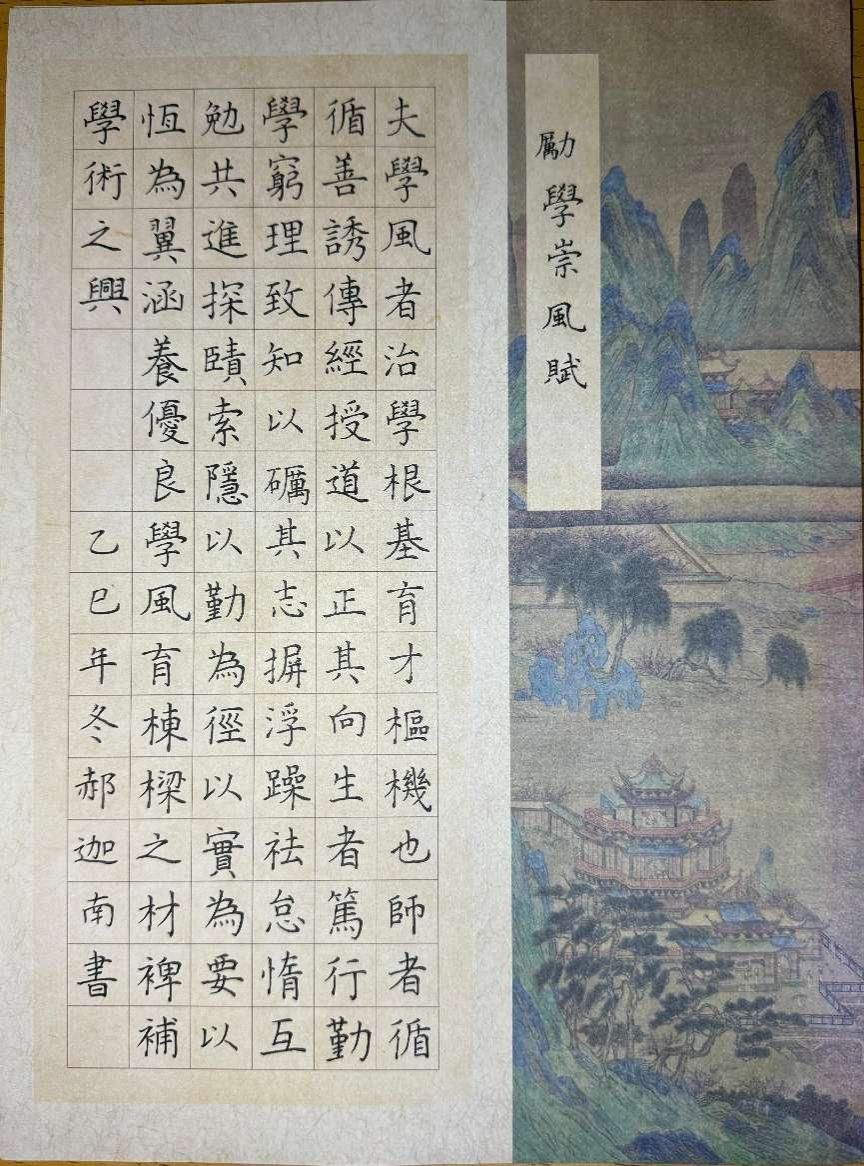 勵學崇風賦
夫學風者治學根基育才樞機也師者循
循善誘傳經授道以正其向生者篤行勤
學窮理致知以礪其志摒浮躁祛怠惰互
勉共進探賾索隱以勤為徑以實為要以
恆為翼涵養優良學風育棟樑之材裨補
學術之興
乙巳年冬郝迦南書